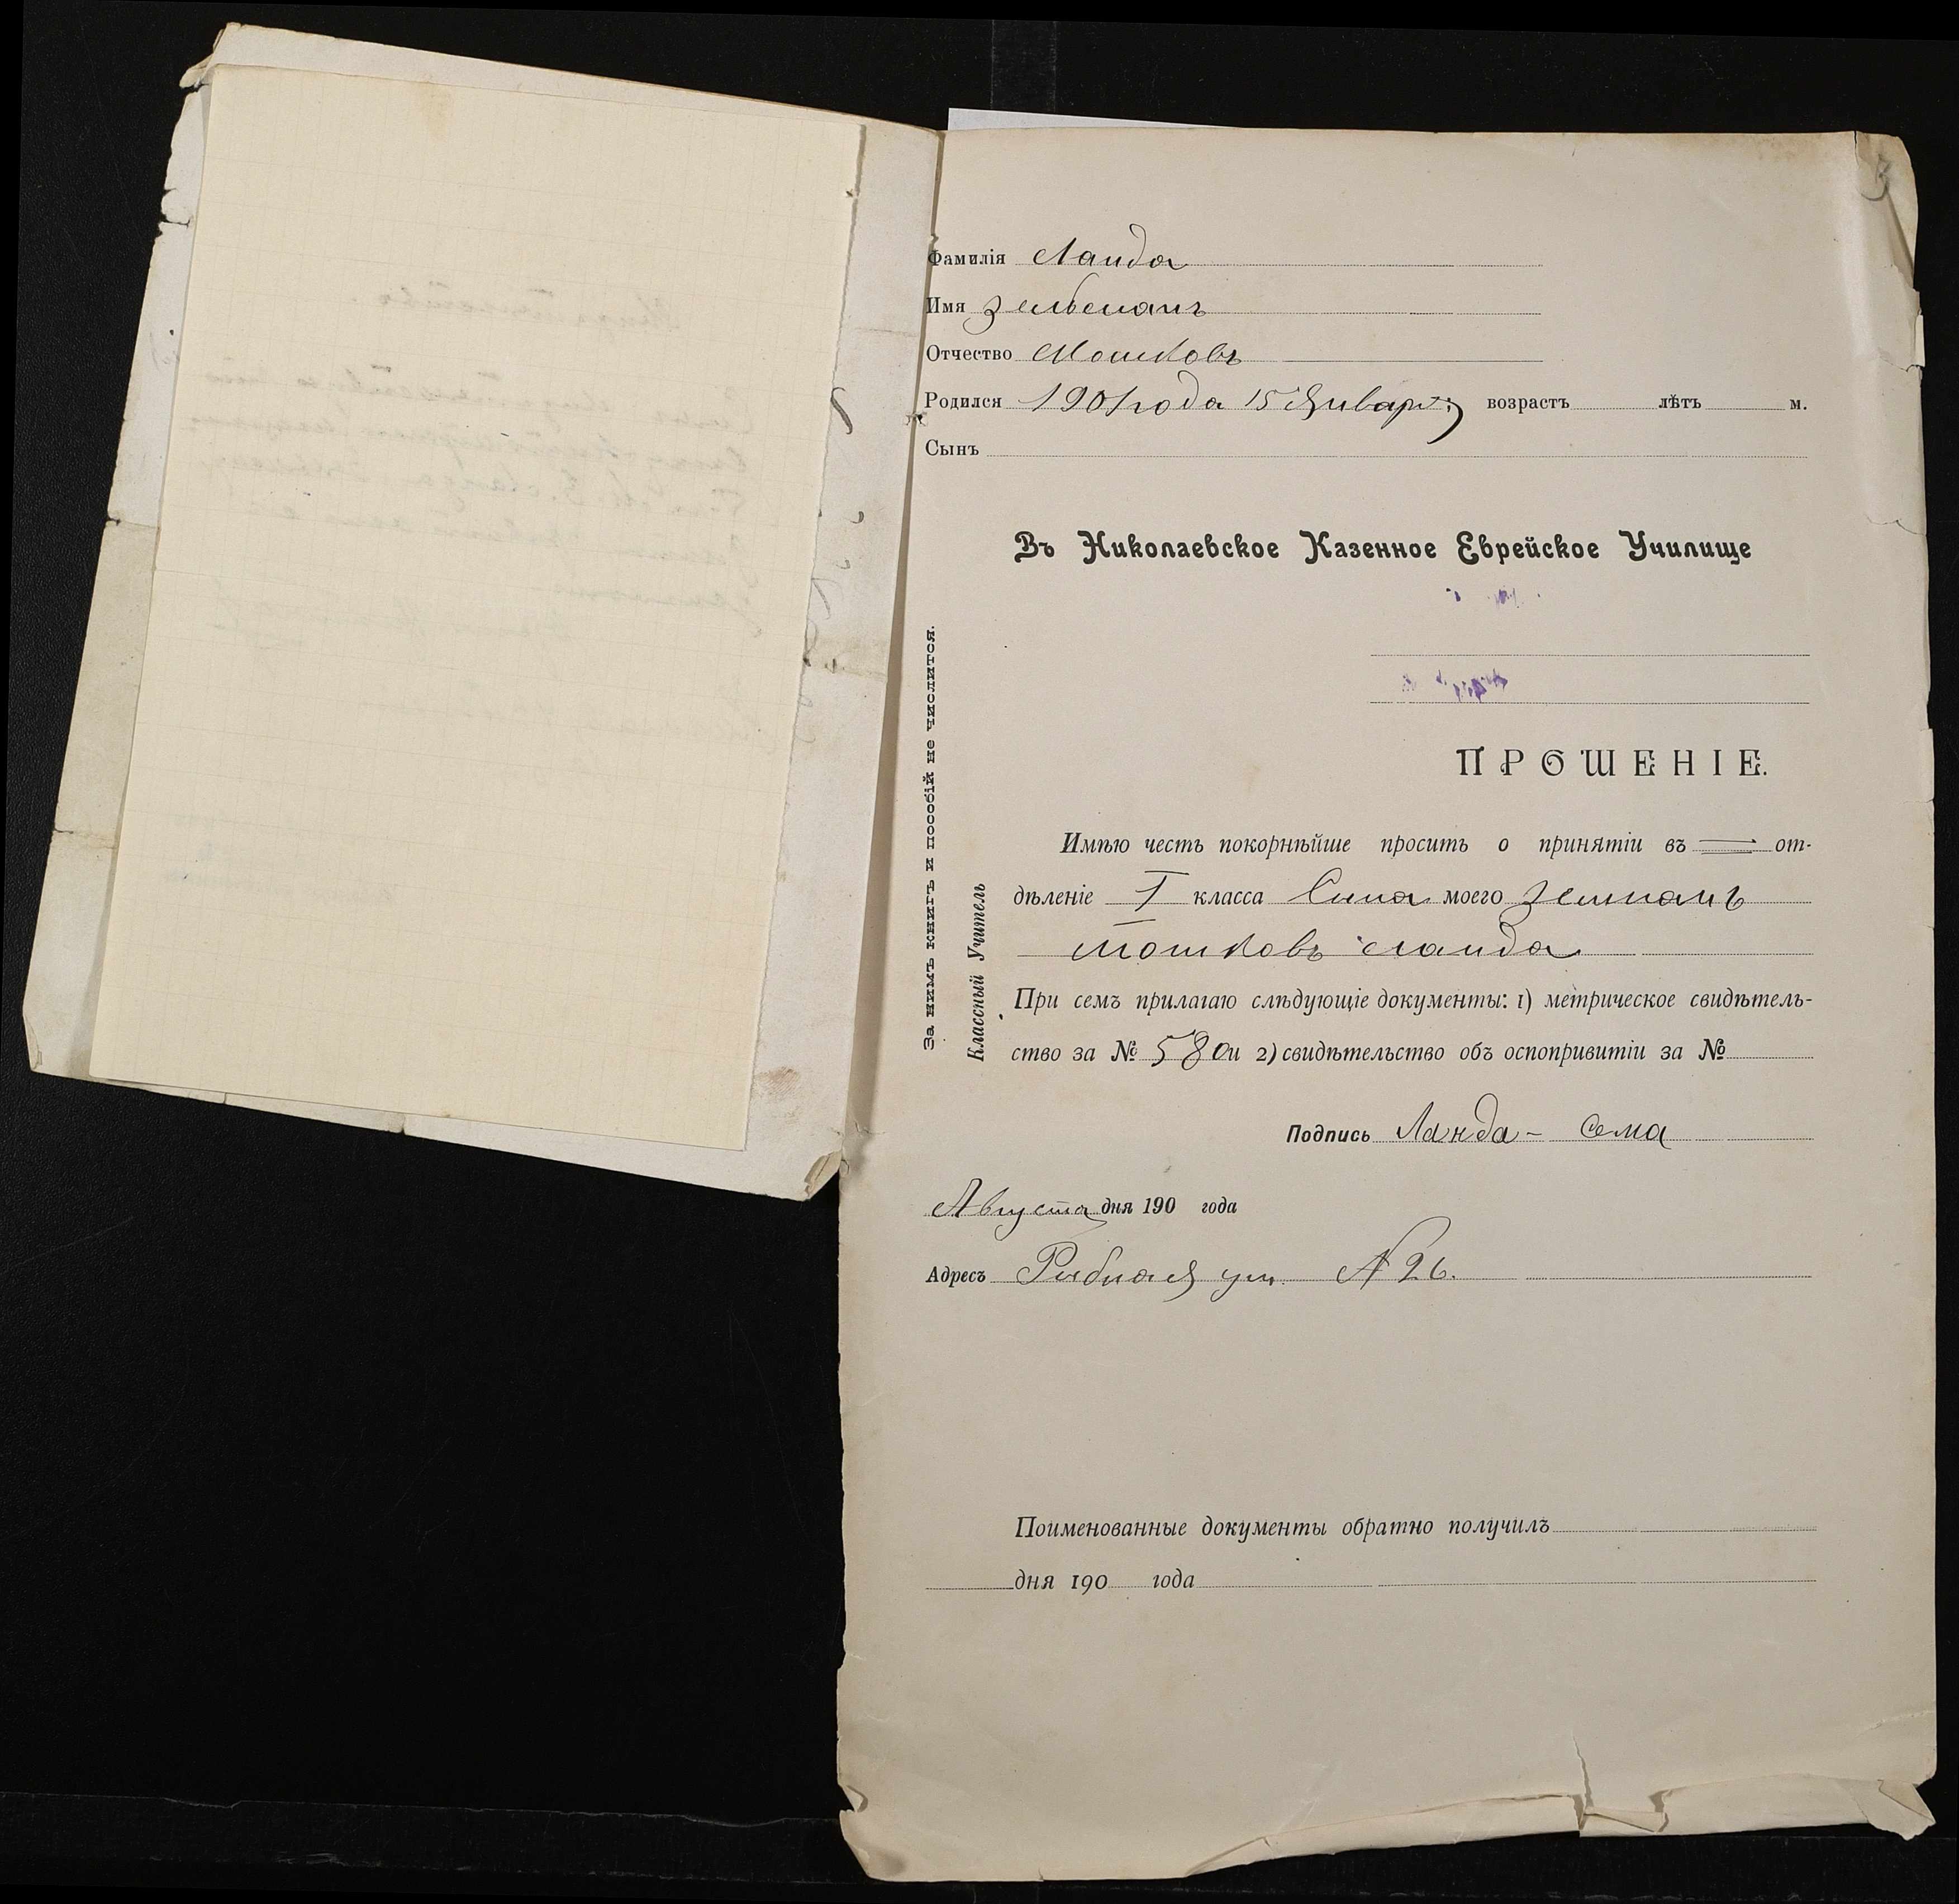 3
Фамилія Ланда
Имя Зельманъ
Отчество Мошковъ
Родился 1901 года 15 Января возрастъ лѣтъ м.
Сынъ
Въ Николаевское Казенное Еврейское Училище
ПРОШЕНІЕ.
Имѣю честь покорнѣйше просить о принятіи въ — от-
дѣленіе I класса Сына моего Зелманъ
Мошковъ Ланда
При семъ прилагаю слѣдующіе документы: 1) метрическое свидѣтель-
ство за № 580 и 2) свидѣтельство объ оспопривитіи за №
Подпись Ланда - Сема
Августа дня 190 года
Адресъ Рибная ул. № 26.
Поименованные документы обратно получилъ
дня 190 года
За нимъ книгъ и пособій не числится.
Классный Учитель